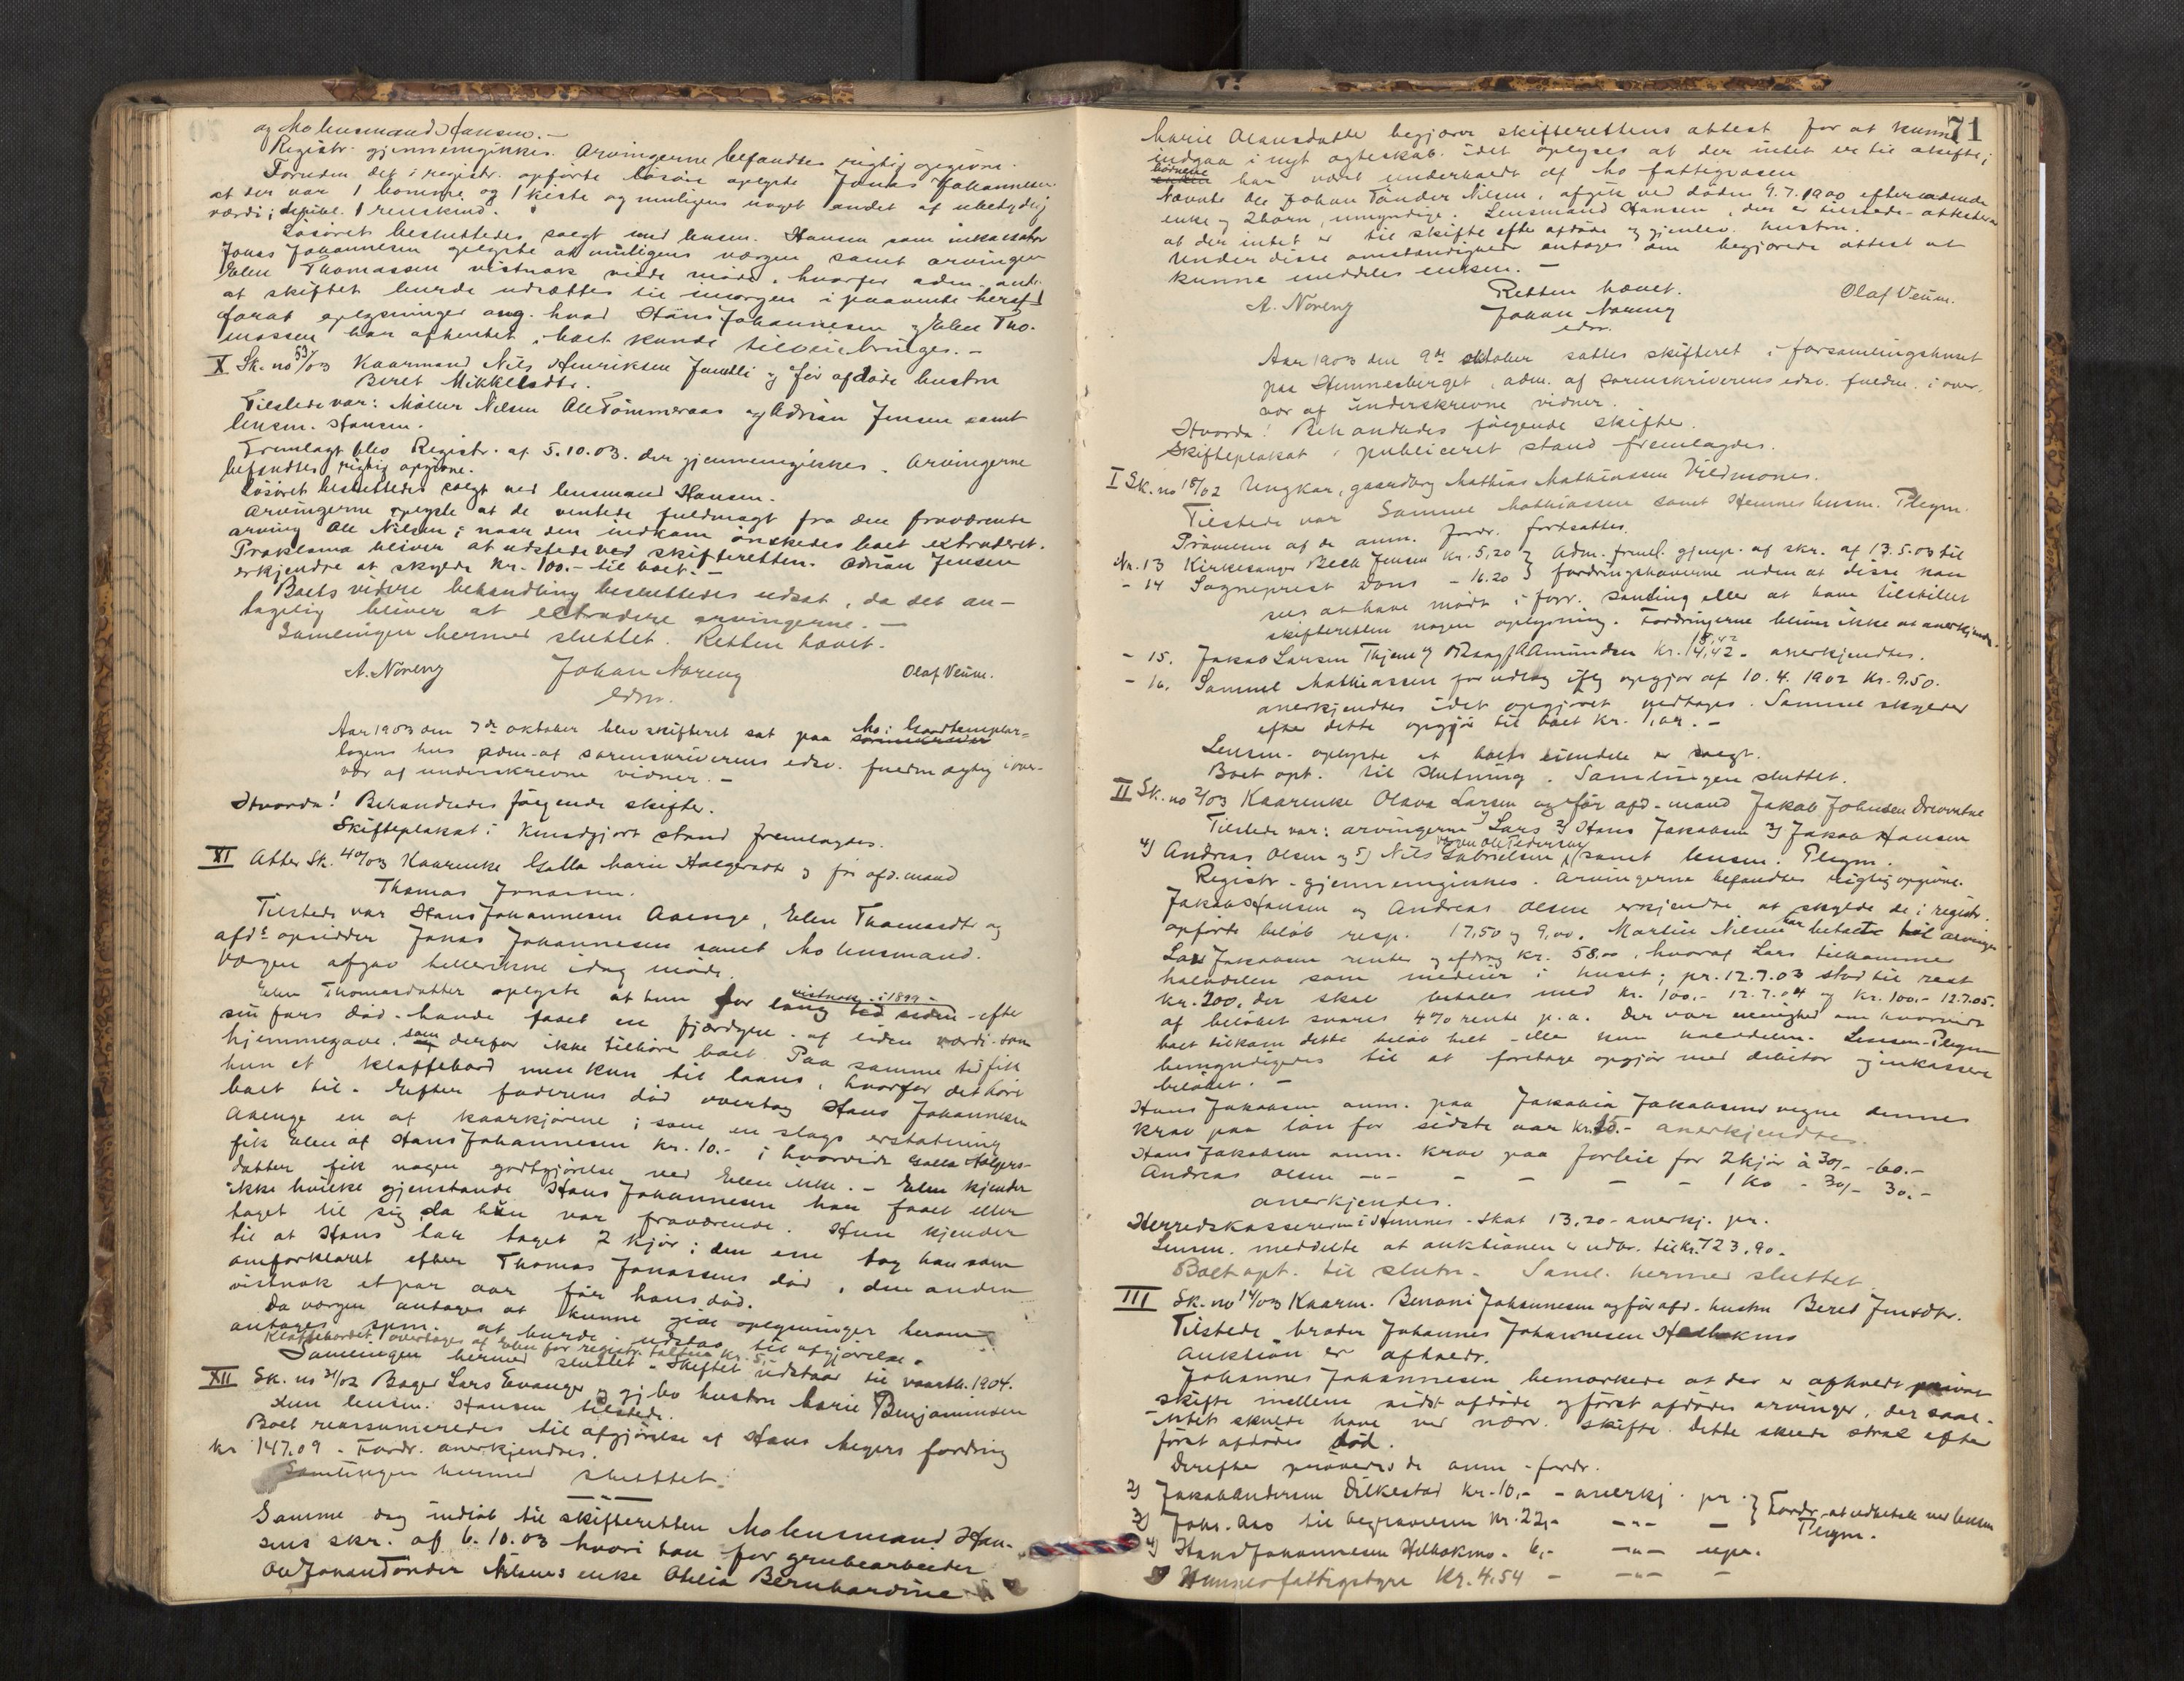 og Mo lensmand Hansen. –
Registr. gjennemgikkes. Arvingerne befandtes rigtig opgivne.
Foruden det i registr. opførte løsøre oplyste Jonas Johannesen
at der var 1 komme og 1 kiste og muligens noget andet af ubetydelig
værdi; 1 renskind.
Løsøret besluttedes solgt ved lensm. Hansen som inkassator
Jonas Johannesen oplyste at muligens værgen samt arvingen
Elen Thomassen vistnok vilde møde, hvorfor adm. antog
at skiftet burde udsættes til imorgen i paavente heraf
forat oplysninger ang. hvad Hans Johannesen og Elen Tho-
massen har afhentet i boet kunde tilveiebringes. –
X Sk. no 53/03 Kaarmand Nils Henriksen og før afdøde hustru
Beret Mikkelsdtr.
Tilstede var: Møller Nilsen Ole Tømmeraas og Adrian Jensen samt
lensm. Hansen.
Fremlagt blev Registr. af 5.10.03. der gjennemgikkes. Arvingerne
befandtes rigtig opgivne.
Løsøret besluttedes solgt ved lensmand Hansen.
Arvingerne oplyste at de ventede fuldmagt fra den fraværende
arving Ole Nilsen; naar den indkom ønskedes boet extraderet.
Proklama bliver at udstede ved skifteretten. Adrian Jensen
erkjendte at skylde kr. 100.– til boet. –
Boets videre behandling besluttedes udsat, da det an-
tagelig bliver at extradere arvingerne. –
Samlingen hermed sluttet. Retten hævet.
A. Noreng Johan Noreng Olaf Veum.
edsv.
Aar 1903 den 7de oktober blev skifteret sat paa Mo i Goodtemplar-
logens hus adm. af sorenskriverens edsv. fuldmægtig i over-
vær af underskrevne vidner. –
Hvorda! Behandledes følgende skifter.
Skifteplakat i kundgjort stand fremlagdes.
XI Atter Sk. 40/03 Kaarenke Golla Marie Holgersdtr og før afd. mand
Thomas Jonassen.
Tilstede var Hans Johannesen Avenge, Elen Thomasdtr og
afd.s opsidder Jonas Johannesen samt Mo lensmand.
Værgen afgav hellerikke idag møde.
Elen Thomasdatter oplyste at hun for lang tid siden vistnok i 1899 – efter
sin fars død – havde faaet en fjordgyn af liden værdi som
hjemmegave, som derfor ikke tilhører boet. Paa samme tid fik
hun et klaffebord men kun til laans, hvorfor det hører
boet til. Efter faderens død overtog Hans Johannesen
Avenge en af kaarkjørene; som en slags erstatning
fik Elen af Hans Johannesen kr. 10.–; hvorvidt Golla Holgers-
datter fik nogen godtgjørelse ved Elen ikke. – Elen kjender
ikke hvilke gjenstande Hans Johannesen har faaet eller
taget til sig da hun var fraværende. Hun kjender
til at Hans har taget 2 kjør; den ene tog han som
omforklaret efter Thomas Jonassens død, den anden
vistnok et par aar før hans død.
Da værgen antages at kunne give oplysninger herom
antages spm. at burde udstaa til afgjørelse.
Klaffebordet overtages af Elen for registr. takst kr. 5,–
Samlingen hermed sluttet. Skiftet udstaar til vaarth. 1904.
XII Sk. no 31/02 Bager Lars Evanger og gj.lev. hustru Marie Benjaminsen
Kun lensm. Hansen tilstede.
Boet reassumeredes til afgjørelse af Hans Meyers fordring
kr 147.09. Fordr. anerkjendtes.
Samlingen hermed sluttet.
Samme dag indløb til skifteretten Mo lensmand Han-
sens skr. af 6.10.03 hvori han for grubearbeider
Ole Johan Tønder Nilsens enke Otelia Bernhardine
71
Marie Olausdatter begjærer skifterettens attest for at kunne
indgaa i nyt ægteskab idet oplyses at der intet er til at skifte;
børnene har været underholdt af Mo fattigvæsen
Nævnte Ole Johan Tønder Nilsen, afgik ved døden 9.7.1900 efterladende
enke og 2 børn, umyndige. Lensmand Hansen, der er tilstede – attesterer
at der intet er til skifte efter afdøde og gjenlev. hustru.
Under disse omstændigheder antages den begjærede attest at
kunne meddeles enken. –
Retten hævet.
A. Noreng Johan Noreng Olaf Veum.
edsv.
Aar 1903 den 9de oktober sattes skifteret i forsamlingshuset
paa Hemnesberget, adm. af sorenskriverens edsv. fuldm. i over-
vær af underskrevne vidner.
Hvorda! Behandledes følgende skifter.
Skifteplakat i publiceret stand fremlagdes.
I Sk. no 18/02 Ungkar, gaardbrg Mathias Mathiassen Vildmones.
Tilstede var Samuel Mathiassen samt Hemnes lensm. Plegm.
Prøvelsen af de anm. fordr. fortsattes.
Nr. 13 Kirkesanger Beck Jensen kr. 5,20 } Adm. freml. gjenp. af skr. af 13.5.03 til
– 14 Sogneprest Dons – 16.20 } fordringshaverne uden at disse kan
sees at have mødt i forr. samling eller at have tilstillet
skifteretten nogen oplysning. Fordringerne bliver ikke at anerkjende.
– 15. Jakob Larsen Thjene og Amundsen kr. 14,42 – anerkjendtes.
– 16. Samuel Mathiassen for udlæg iflg opgjør af 10.4.1902 kr. 9.50.
anerkjendtes idet opgjøret vedtages. Samuel skylder
efter dette opgjør til boet kr. –
Lensm. oplyste at boets eiendele er solgt.
Boet opt. til slutning. Samlingen sluttet.
II Sk. no 2/03 Kaarenke Olava Larsen og før afd. mand Jakob Johnsen
Tilstede var: arvingerne 1) Lars 2) Hans Jakobsen 3) Jakob Hansen
4) Andreas Olsen og 5) Nils Gabrielsen ved Ole Pedersen samt lensm. Plegm.
Registr. gjennemgikkes. Arvingerne befandtes rigtig opgivne.
Jakob Hansen og Andreas Olsen erkjendte at skylde de i registr.
opførte beløb resp. 17,50 og 9,00. Martin Nilsen har betalt til arvingen
Lars Jakobsen renter og afdrag kr. 58,00, hvoraf Lars tilkommer
halvdelen som medeier i huset; pr. 12.7.03 stod til rest
kr. 200. der skal betales med kr. 100.– 12.7.04 og kr. 100.– 12.7.05.
af beløbet svares 4% rente p.a. Der var uenighed om hvorvidt
boet tilkom dette beløb helt – eller kun halvdelen. Lensm. Plegm
bemyndigedes til at foretage opgjør med debitor og inkassere
beløbet. –
Hans Jakobsen anm. paa Jakobia Jakobsens vegne dennes
krav paa løn for sidste aar kr. – anerkjendtes.
Hans Jakobsen anm. krav paa forleie for 2 kjør à 30,– – 60.–
Andreas Olsen –"– – – – – 1 ko – 30,– 30.–
anerkjendes.
Herredskassereren i Hemnes – Skat 13,20 – anerkj. pr.
Lensm. meddelte at auktionen er udbr. til kr. 723.90.
Boet opt. til slutn. Saml. hermed sluttet.
III Sk. no 14/03 Kaarm. Benoni Johannesen og før afd. hustru Beret Jensdtr.
Tilstede broder Johannes Johannesen
Auktion er afholdt.
Johannes Johannesen bemærkede at der er afholdt privat
skifte mellem sidst afdøde og først afdødes arvinger, der saal.
intet skulde have ved nærv. skifte. Dette skede strax efter
først afdødes død.
Derefter prøvedes de anm. fordr.
2) Jakob Andersen Dilkestad kr. 10,– – anerkj. pr. } Fordr. at udbetale ved lensm
3) Johs. Aas til begravelsen kr. 22,– –"– – Plegm.
4) Hans Johannesen Helbakmo. 6,– –"– upr.
Hemnes fattigstyre kr. 4.54 – –"– –